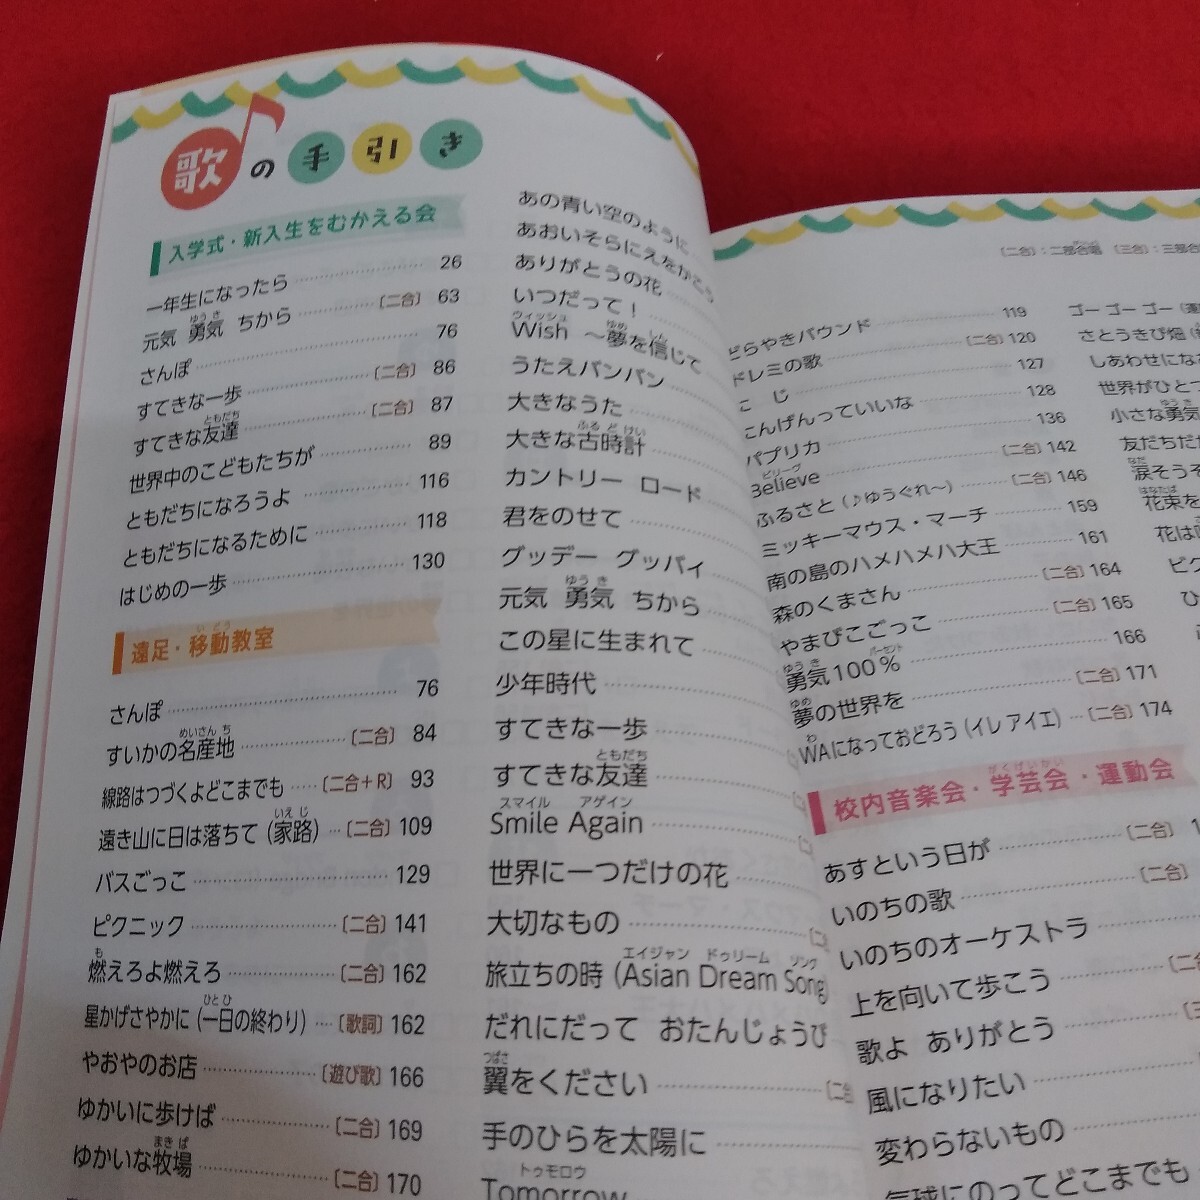 歌の手引き
入学式・新入生をむかえる会
一年生になったら 26
元気 勇気 ちから 〔二合〕 63
さんぽ 76
すてきな一歩 〔二合〕 86
すてきな友達 〔二合〕 87
世界中のこどもたちが 89
ともだちになろうよ 116
ともだちになるために 118
はじめの一歩 130
遠足・移動教室
さんぽ 76
すいかの名産地 〔二合〕 84
線路はつづくよどこまでも 〔二合+R〕 93
遠き山に日は落ちて(家路) 〔二合〕 109
バスごっこ 129
ピクニック 〔二合〕 141
燃えろよ燃えろ 〔二合〕 162
星かげさやかに(一日の終わり) 〔歌詞〕 162
やおやのお店 〔遊び歌〕 166
ゆかいに歩けば 〔二合〕 169
ゆかいな牧場 〔二合〕 170
あの青い空のように
あおいそらにえをかこう
ありがとうの花
いつだって!
Wish 〜夢を信じて
うたえバンバン
大きなうた
大きな古時計
カントリー ロード
君をのせて
グッデー グッバイ
元気 勇気 ちから
この星に生まれて
少年時代
すてきな一歩
すてきな友達
Smile Again
世界に一つだけの花
大切なもの
旅立ちの時(Asian Dream Song)
だれにだって おたんじょうび
翼をください
手のひらを太陽に
Tomorrow
〔二合〕:二部合唱 〔三合〕:三部合
どらやきバウンド 119
ドレミの歌 〔二合〕 120
こじ 127
にんげんっていいな 128
パプリカ 136
Believe 〔二合〕 142
ふるさと(♪ゆうぐれ〜) 〔二合〕 146
ミッキーマウス・マーチ 159
南の島のハメハメハ大王 161
森のくまさん 〔二合〕 164
やまびこごっこ 〔二合〕 165
勇気100% 166
夢の世界を 〔二合〕 171
WAになっておどろう(イレ アイエ) 〔二合〕 174
校内音楽会・学芸会・運動会
あすという日が 〔二合〕
いのちの歌 〔二合〕
いのちのオーケストラ
上を向いて歩こう
歌よ ありがとう
風になりたい
変わらないもの
気球にのってどこまでも
ゴー ゴー ゴー
さとうきび畑
しあわせにな
世界がひとつ
小さな勇気
友だちだ
涙そうそ
花束を
花は
ピク